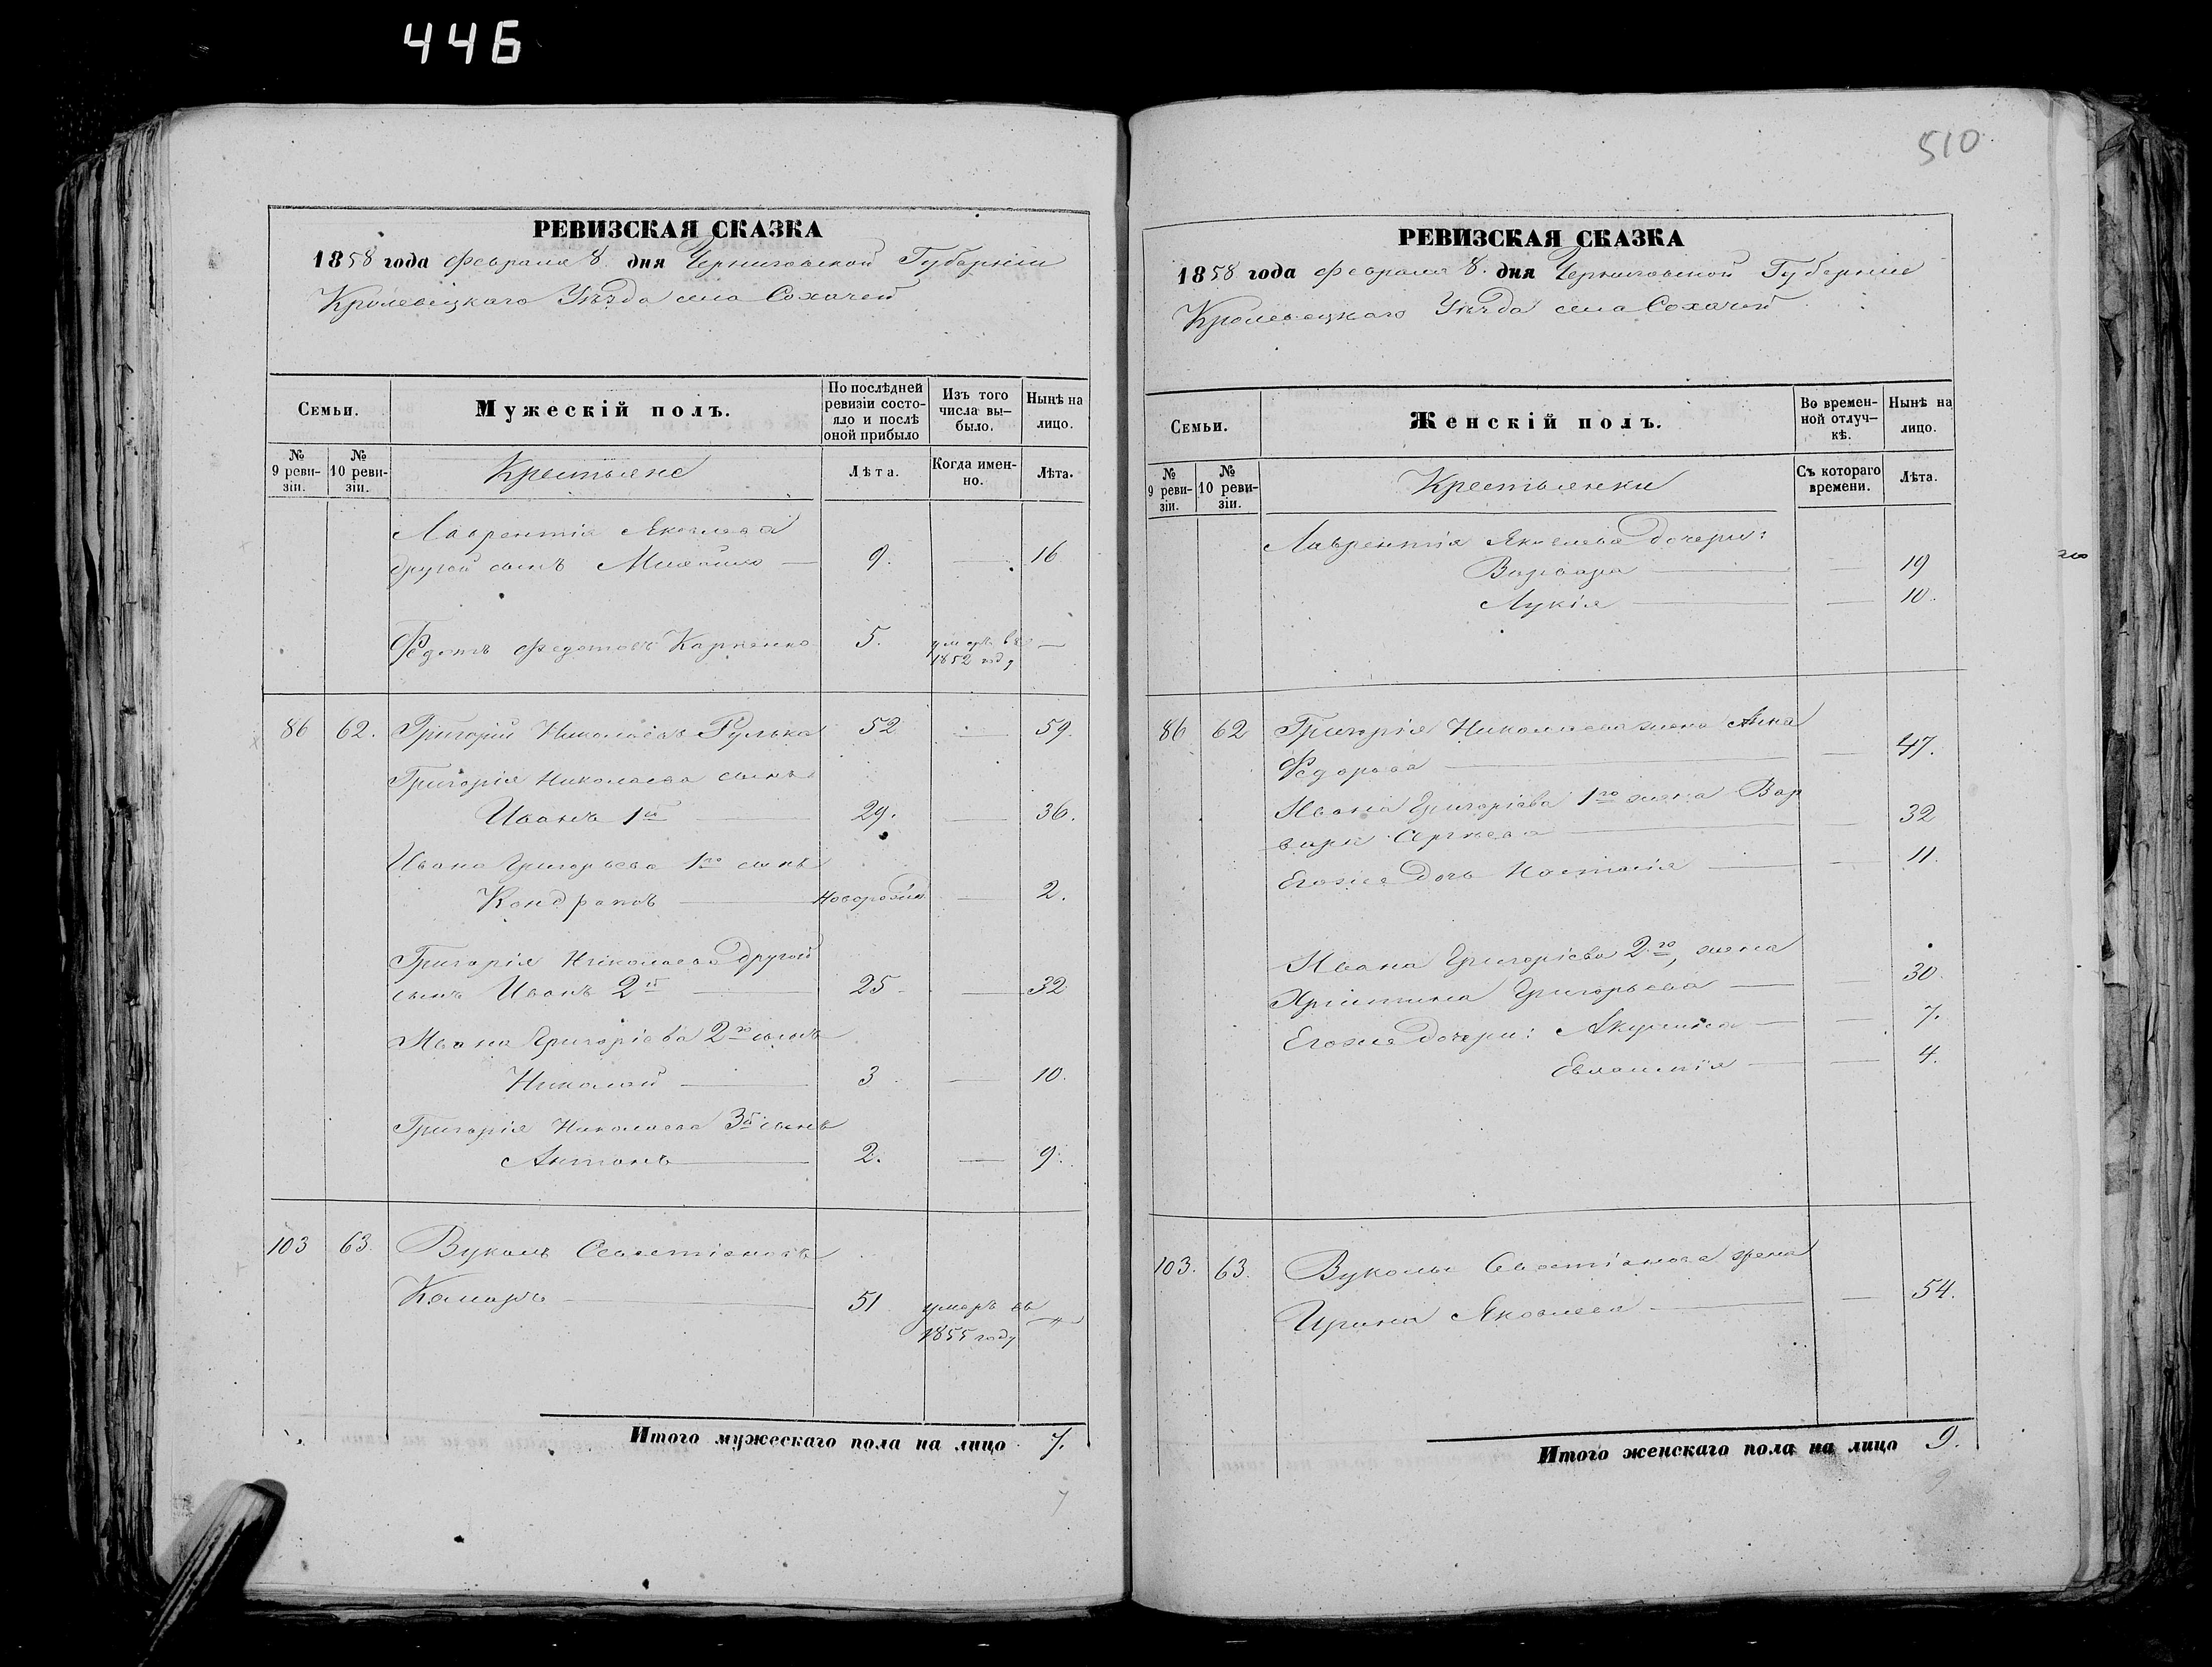 446
РЕВИЗСКАЯ СКАЗКА
1858 года Февраля 8. дня Черниговской Губерніи
Кролевецкаго Уѣзда села Сохачей
Семьи.
Мужескій полъ.
По послѣдней ревизіи состояло и послѣ оной прибыло
Изъ того числа выбыло.
Нынѣ на лицо.
№ 9 ревизіи.
№ 10 ревизіи.
Крестьяне
Лѣта.
Когда именно.
Лѣта.
Лаврентія Яковлева
другой сынъ Михайло — 9. — 16
Федотъ Федотовъ Карпенко 5. умеръ въ 1852 году —
86 62. Григорій Николаевъ Рулька 52 — 59.
Григорія Николаева сынъ
Иванъ 1й — 29. — 36.
Ивана Григорьева 1го сынъ
Кондратъ — новорожд. — 2.
Григорія Николаева другой
сынъ Иванъ 2й — 25 — 32
Ивана Григоріева 2го сынъ
Николай — 3 — 10.
Григорія Николаева 3й сынъ
Антонъ — 2. — 9.
103 63. Вуколъ Севастіановъ
Комаръ — 51 умеръ въ 1855 году —
Итого мужескаго пола на лицо 7.
7
510
РЕВИЗСКАЯ СКАЗКА
1858 года Февраля 8. дня Черниговской Губерніи
Кролевецкаго Уѣзда села Сохачей
Семьи.
Женскій полъ.
Во временной отлучкѣ.
Нынѣ на лицо.
№ 9 ревизіи.
№ 10 ревизіи.
Крестьянки
Съ котораго времени.
Лѣта.
Лаврентія Яковлева дочери:
Варвара — — 19
Лукія — — 10.
86 62 Григорія Николаева жена Анна
Федорова — — 47.
Ивана Григоріева 1го жена Вар
вара Сергѣева — — 32
Егоже дочь Настасія — — 11.
Ивана Григоріева 2го, жена
Христина Григорьева — — 30.
Егоже дочери: Акулина — — 7.
Евлампія — — 4.
103. 63. Вукола Севастіанова жена
Ирина Яковлева — — 54.
Итого женскаго пола на лицо 9.
9